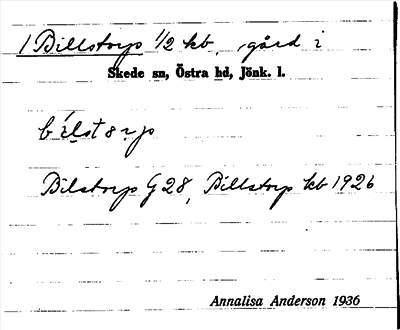 1 Billstorp 1/2 kb, gård i
Skede sn, Östra hd, Jönk. l.
Bilstorp G 28, Billstorp kb 1926
Annalisa Anderson 1936